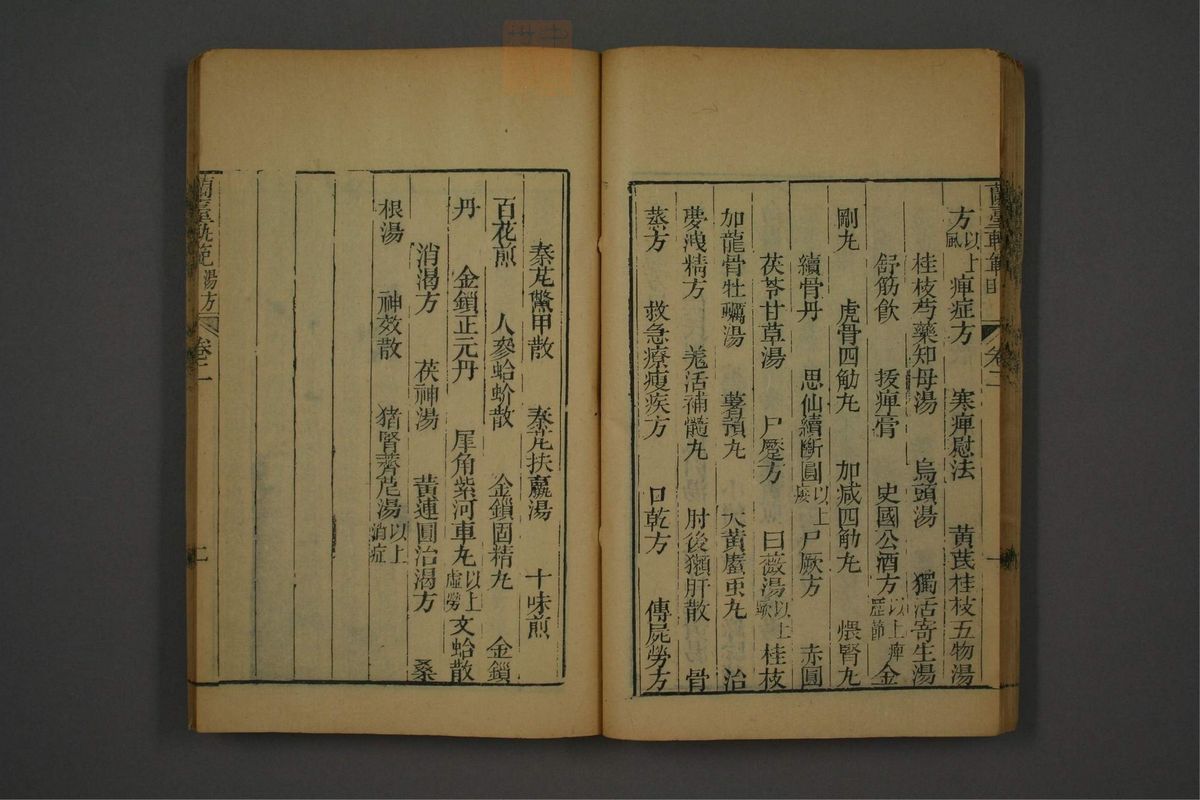 蘭臺軌範目 卷二 一
方以上風 痺症方 寒痺慰法 黃芪桂枝五物湯
桂枝芍藥知母湯 烏頭湯 獨活寄生湯
舒筋飲 拔痺膏 史國公酒方以上痺歷節 金
剛丸 虎骨四觔丸 加減四觔丸 煨腎丸
續骨丹 思仙續斷圓以上痿 尸厥方 赤圓
茯苓甘草湯 尸蹷方 白薇湯以上厥 桂枝
加龍骨牡蠣湯 薯蕷丸 大黃䗪虫丸 治
夢洩精方 羗活補髓丸 肘後獺肝散 骨
蒸方 救急療瘦疾方 口乾方 傳屍勞方
秦艽鱉甲散 秦艽扶羸湯 十味煎
百花煎 人參蛤蚧散 金鎖固精丸 金鎖
丹 金鎖正元丹 犀角紫河車丸以上虛勞 文蛤散
消渴方 茯神湯 黃連圓治渴方 桑
根湯 神效散 猪腎薺苨湯以上消症
蘭臺軌範 湯方 卷二